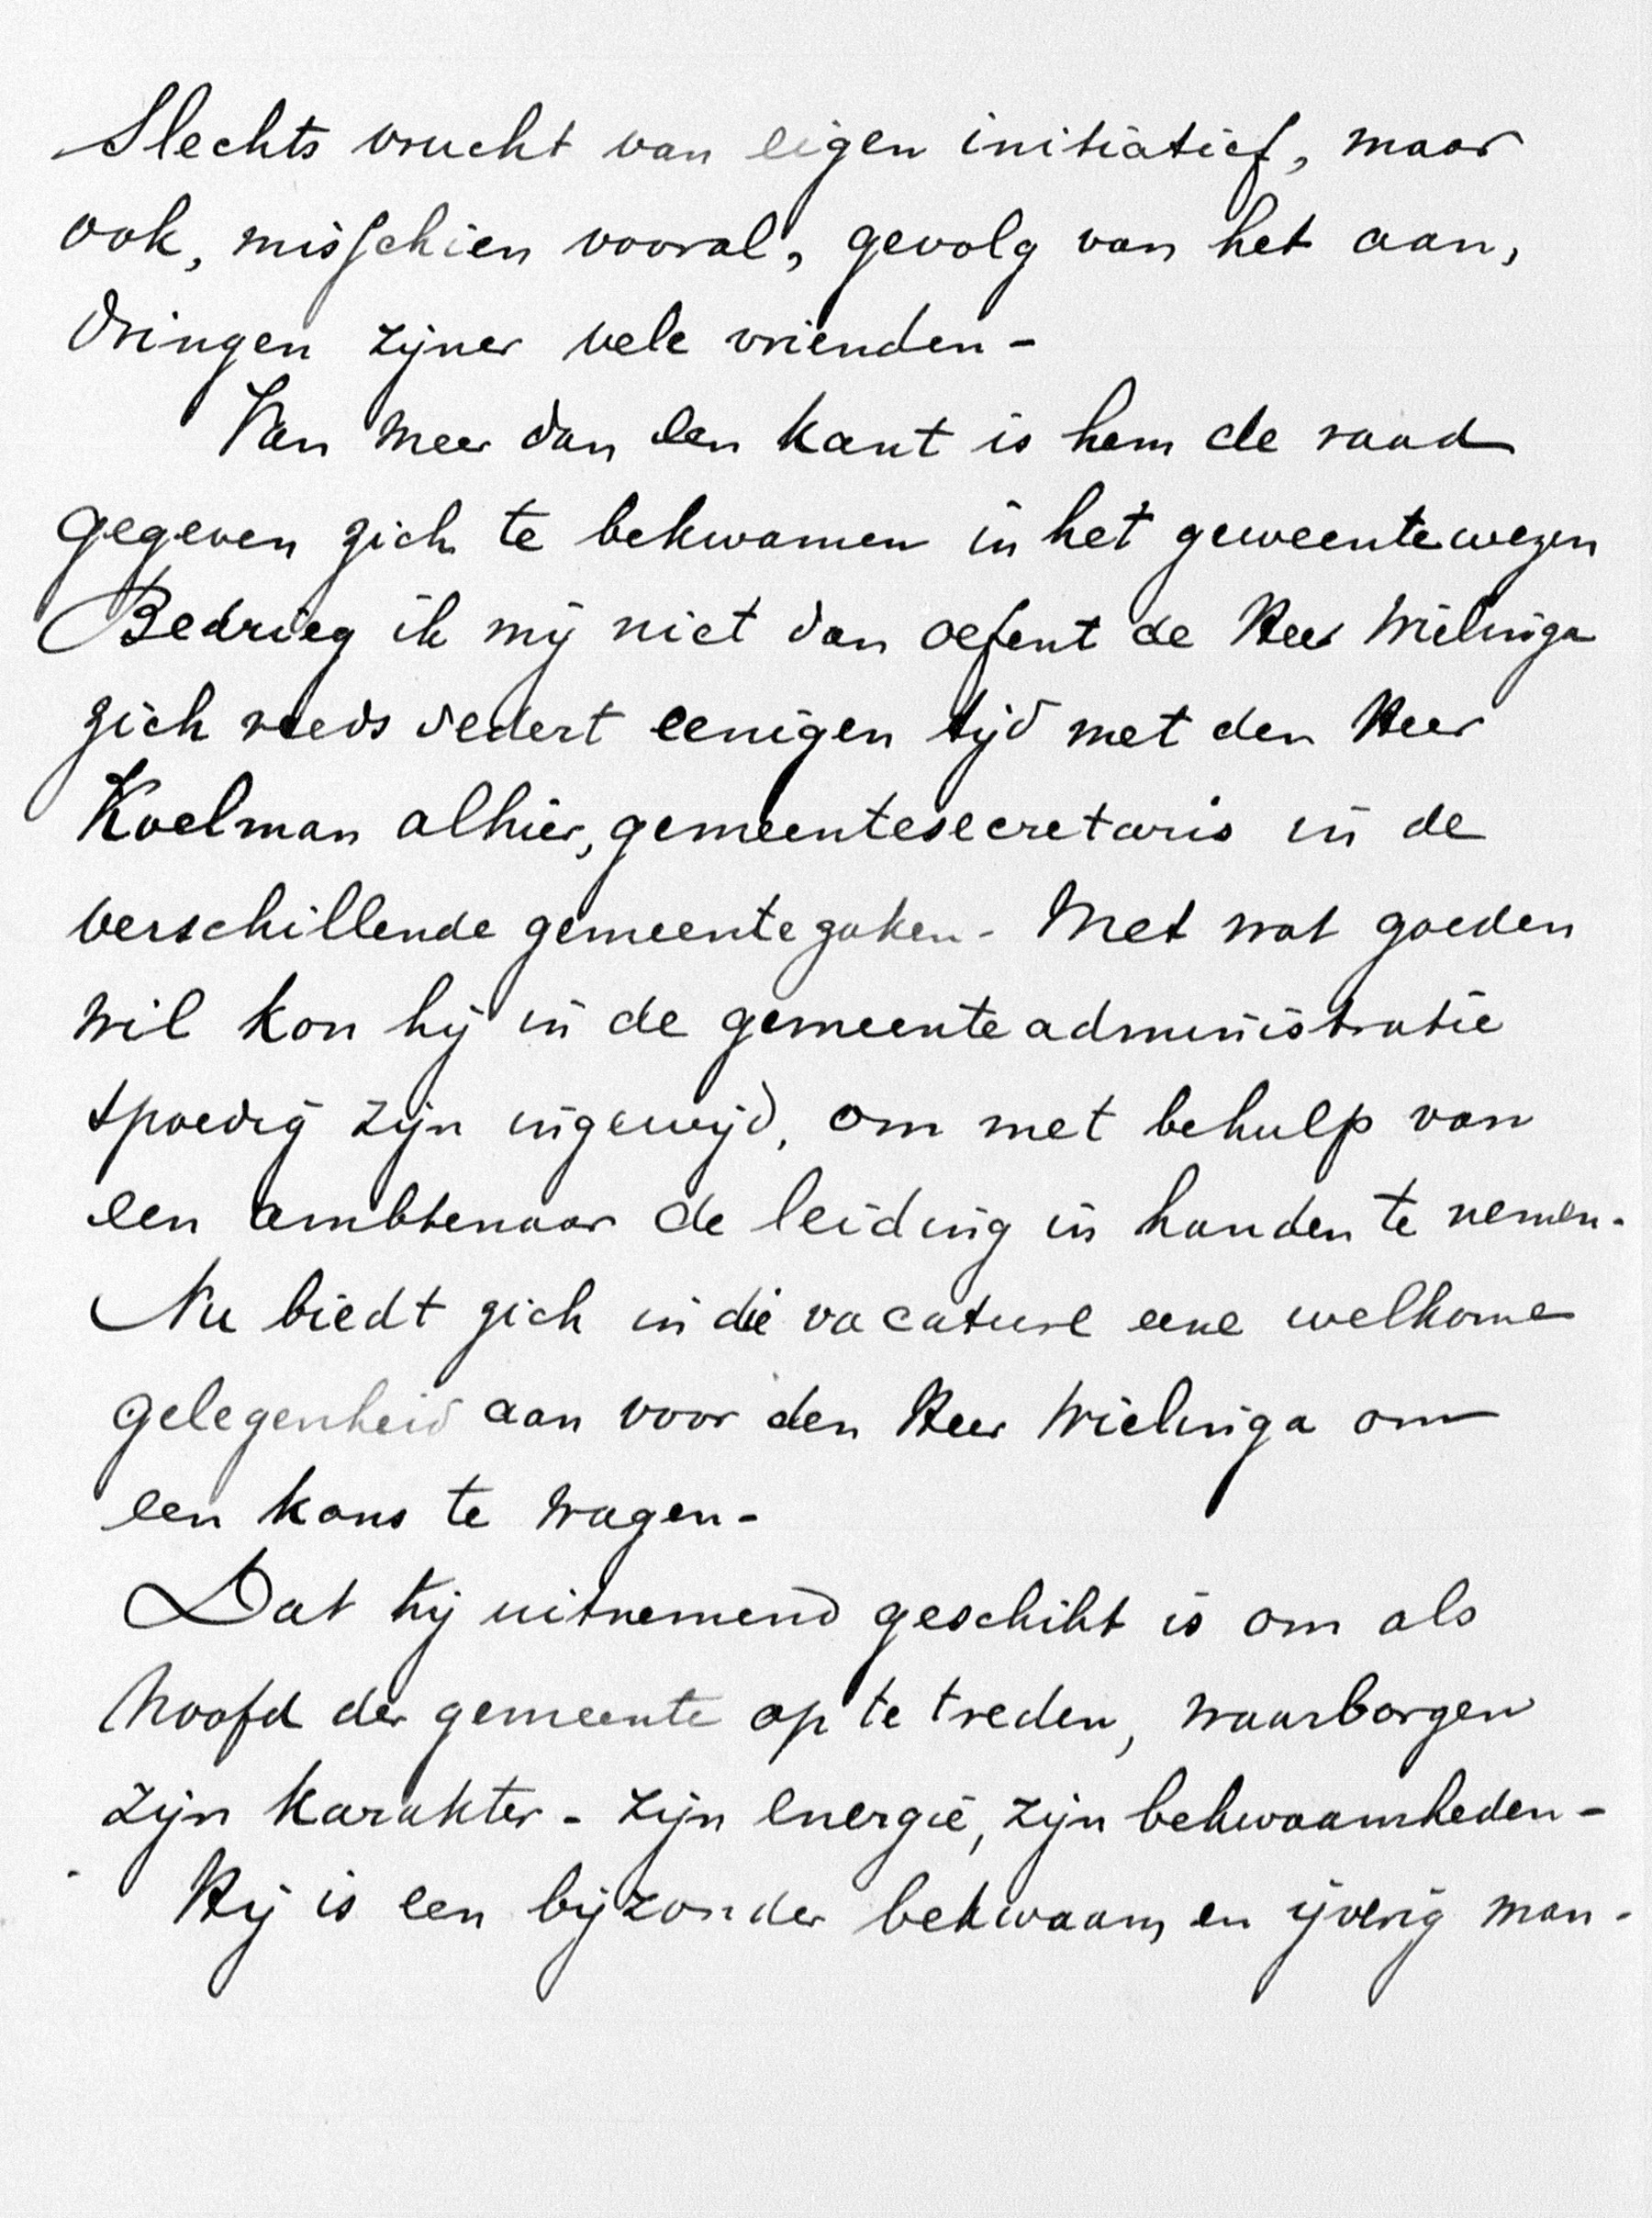 Slechts vrucht van eigen initiatief, maar
ook, misschien vooral, gevolg van het aan,
dringen zijner vele vrienden -
Van meer dan een kant is hem de raad
gegeven zich te bekwamen in het gemeentewezen
Bedrieg ik mij niet dan oefent de Heer Wielinga
zich reeds sedert eenigen tijd met den Heer
Koelman alhier, gemeentesecretaris in de
verschillende gemeentezaken - Met wat goeden
wil kon hij in de gemeenteadministratie
spoedig zijn ingewijd, om met behulp van
een ambtenaar de leiding in handen te nemen -
Nu biedt zich in die vacature eene welkome
gelegenheid aan voor den Heer Wielinga om
een kans te wagen -
Dat hij uitnemend geschikt is om als
hoofd der gemeente op te treden, waarborgen
zijn karakter - zijn energie, zijn bekwaamheden -
Hij is een bijzonder bekwaam en ijverig man -